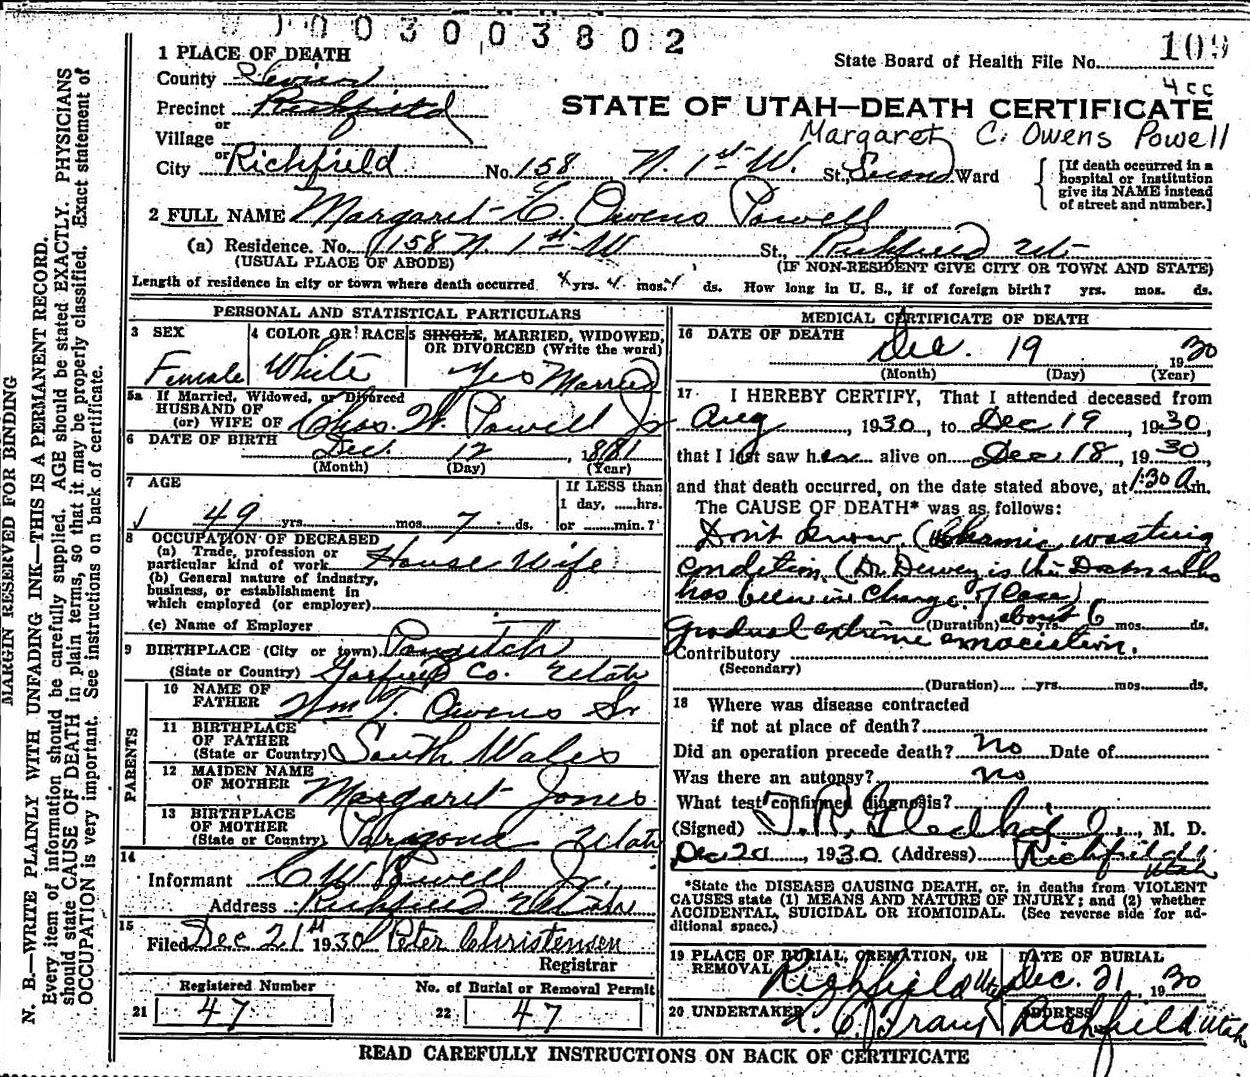 003003802
1 PLACE OF DEATH
State Board of Health File No. 109
4cc
County Sevier
Precinct Richfield
STATE OF UTAH—DEATH CERTIFICATE
or
Village
Margaret C. Owens Powell
or
City Richfield No. 158 N. 1st W. St., Second Ward
[If death occurred in a hospital or institution give its NAME instead of street and number.]
2 FULL NAME Margaret C. Owens Powell
(a) Residence. No. 158 N 1st W St., Richfield Ut
(USUAL PLACE OF ABODE) (IF NON-RESIDENT GIVE CITY OR TOWN AND STATE)
Length of residence in city or town where death occurred yrs. 4 mos. ds. How long in U. S., if of foreign birth? yrs. mos. ds.
PERSONAL AND STATISTICAL PARTICULARS
3 SEX
Female
4 COLOR OR RACE
White
5 SINGLE, MARRIED, WIDOWED, OR DIVORCED (Write the word)
Yes Married
5a If Married, Widowed, or Divorced
HUSBAND OF
(or) WIFE OF Chas. W. Powell Jr
6 DATE OF BIRTH Dec. 12, 1881
(Month) (Day) (Year)
7 AGE
49 yrs. mos. 7 ds.
If LESS than 1 day, ......hrs. or ......min.?
8 OCCUPATION OF DECEASED
(a) Trade, profession or particular kind of work House Wife
(b) General nature of industry, business, or establishment in which employed (or employer)
(c) Name of Employer
9 BIRTHPLACE (City or town) Panguitch
(State or Country) Garfield Co. Utah
PARENTS
10 NAME OF FATHER Wm T. Owens Sr
11 BIRTHPLACE OF FATHER (State or Country) South Wales
12 MAIDEN NAME OF MOTHER Margaret Jones
13 BIRTHPLACE OF MOTHER (State or Country) Paragonah Utah
14
Informant C W Powell Jr.
Address Richfield Utah
15
Filed Dec 21st 1930 Peter Christensen
Registrar
Registered Number
21 47
No. of Burial or Removal Permit
22 47
MEDICAL CERTIFICATE OF DEATH
16 DATE OF DEATH
Dec. 19 1930
(Month) (Day) (Year)
17 I HEREBY CERTIFY, That I attended deceased from
Aug, 1930, to Dec 19 1930,
that I last saw her alive on Dec 18, 1930,
and that death occurred, on the date stated above, at 1:30 A m.
The CAUSE OF DEATH* was as follows:
Don't know. (Chronic wasting
condition (Dr. Dewey is the Doctor who
has been in charge of case)
(Duration) yrs. about 6 mos. ds.
gradual extreme emaciation.
Contributory
(Secondary)
(Duration) yrs. mos. ds.
18 Where was disease contracted
if not at place of death?
Did an operation precede death? No Date of
Was there an autopsy? no
What test confirmed diagnosis?
(Signed) T. R. Gledhill, M. D.
Dec 20, 1930 (Address) Richfield Utah
*State the DISEASE CAUSING DEATH, or, in deaths from VIOLENT
CAUSES state (1) MEANS AND NATURE OF INJURY; and (2) whether
ACCIDENTAL, SUICIDAL OR HOMICIDAL. (See reverse side for additional space.)
19 PLACE OF BURIAL, CREMATION, OR REMOVAL
Richfield Utah
DATE OF BURIAL
Dec. 21 1930
20 UNDERTAKER
ADDRESS
Richfield Utah
READ CAREFULLY INSTRUCTIONS ON BACK OF CERTIFICATE
MARGIN RESERVED FOR BINDING
N. B.—WRITE PLAINLY WITH UNFADING INK—THIS IS A PERMANENT RECORD.
Every item of information should be carefully supplied. AGE should be stated EXACTLY. PHYSICIANS
should state CAUSE OF DEATH in plain terms, so that it may be properly classified. Exact statement of
OCCUPATION is very important. See instructions on back of certificate.